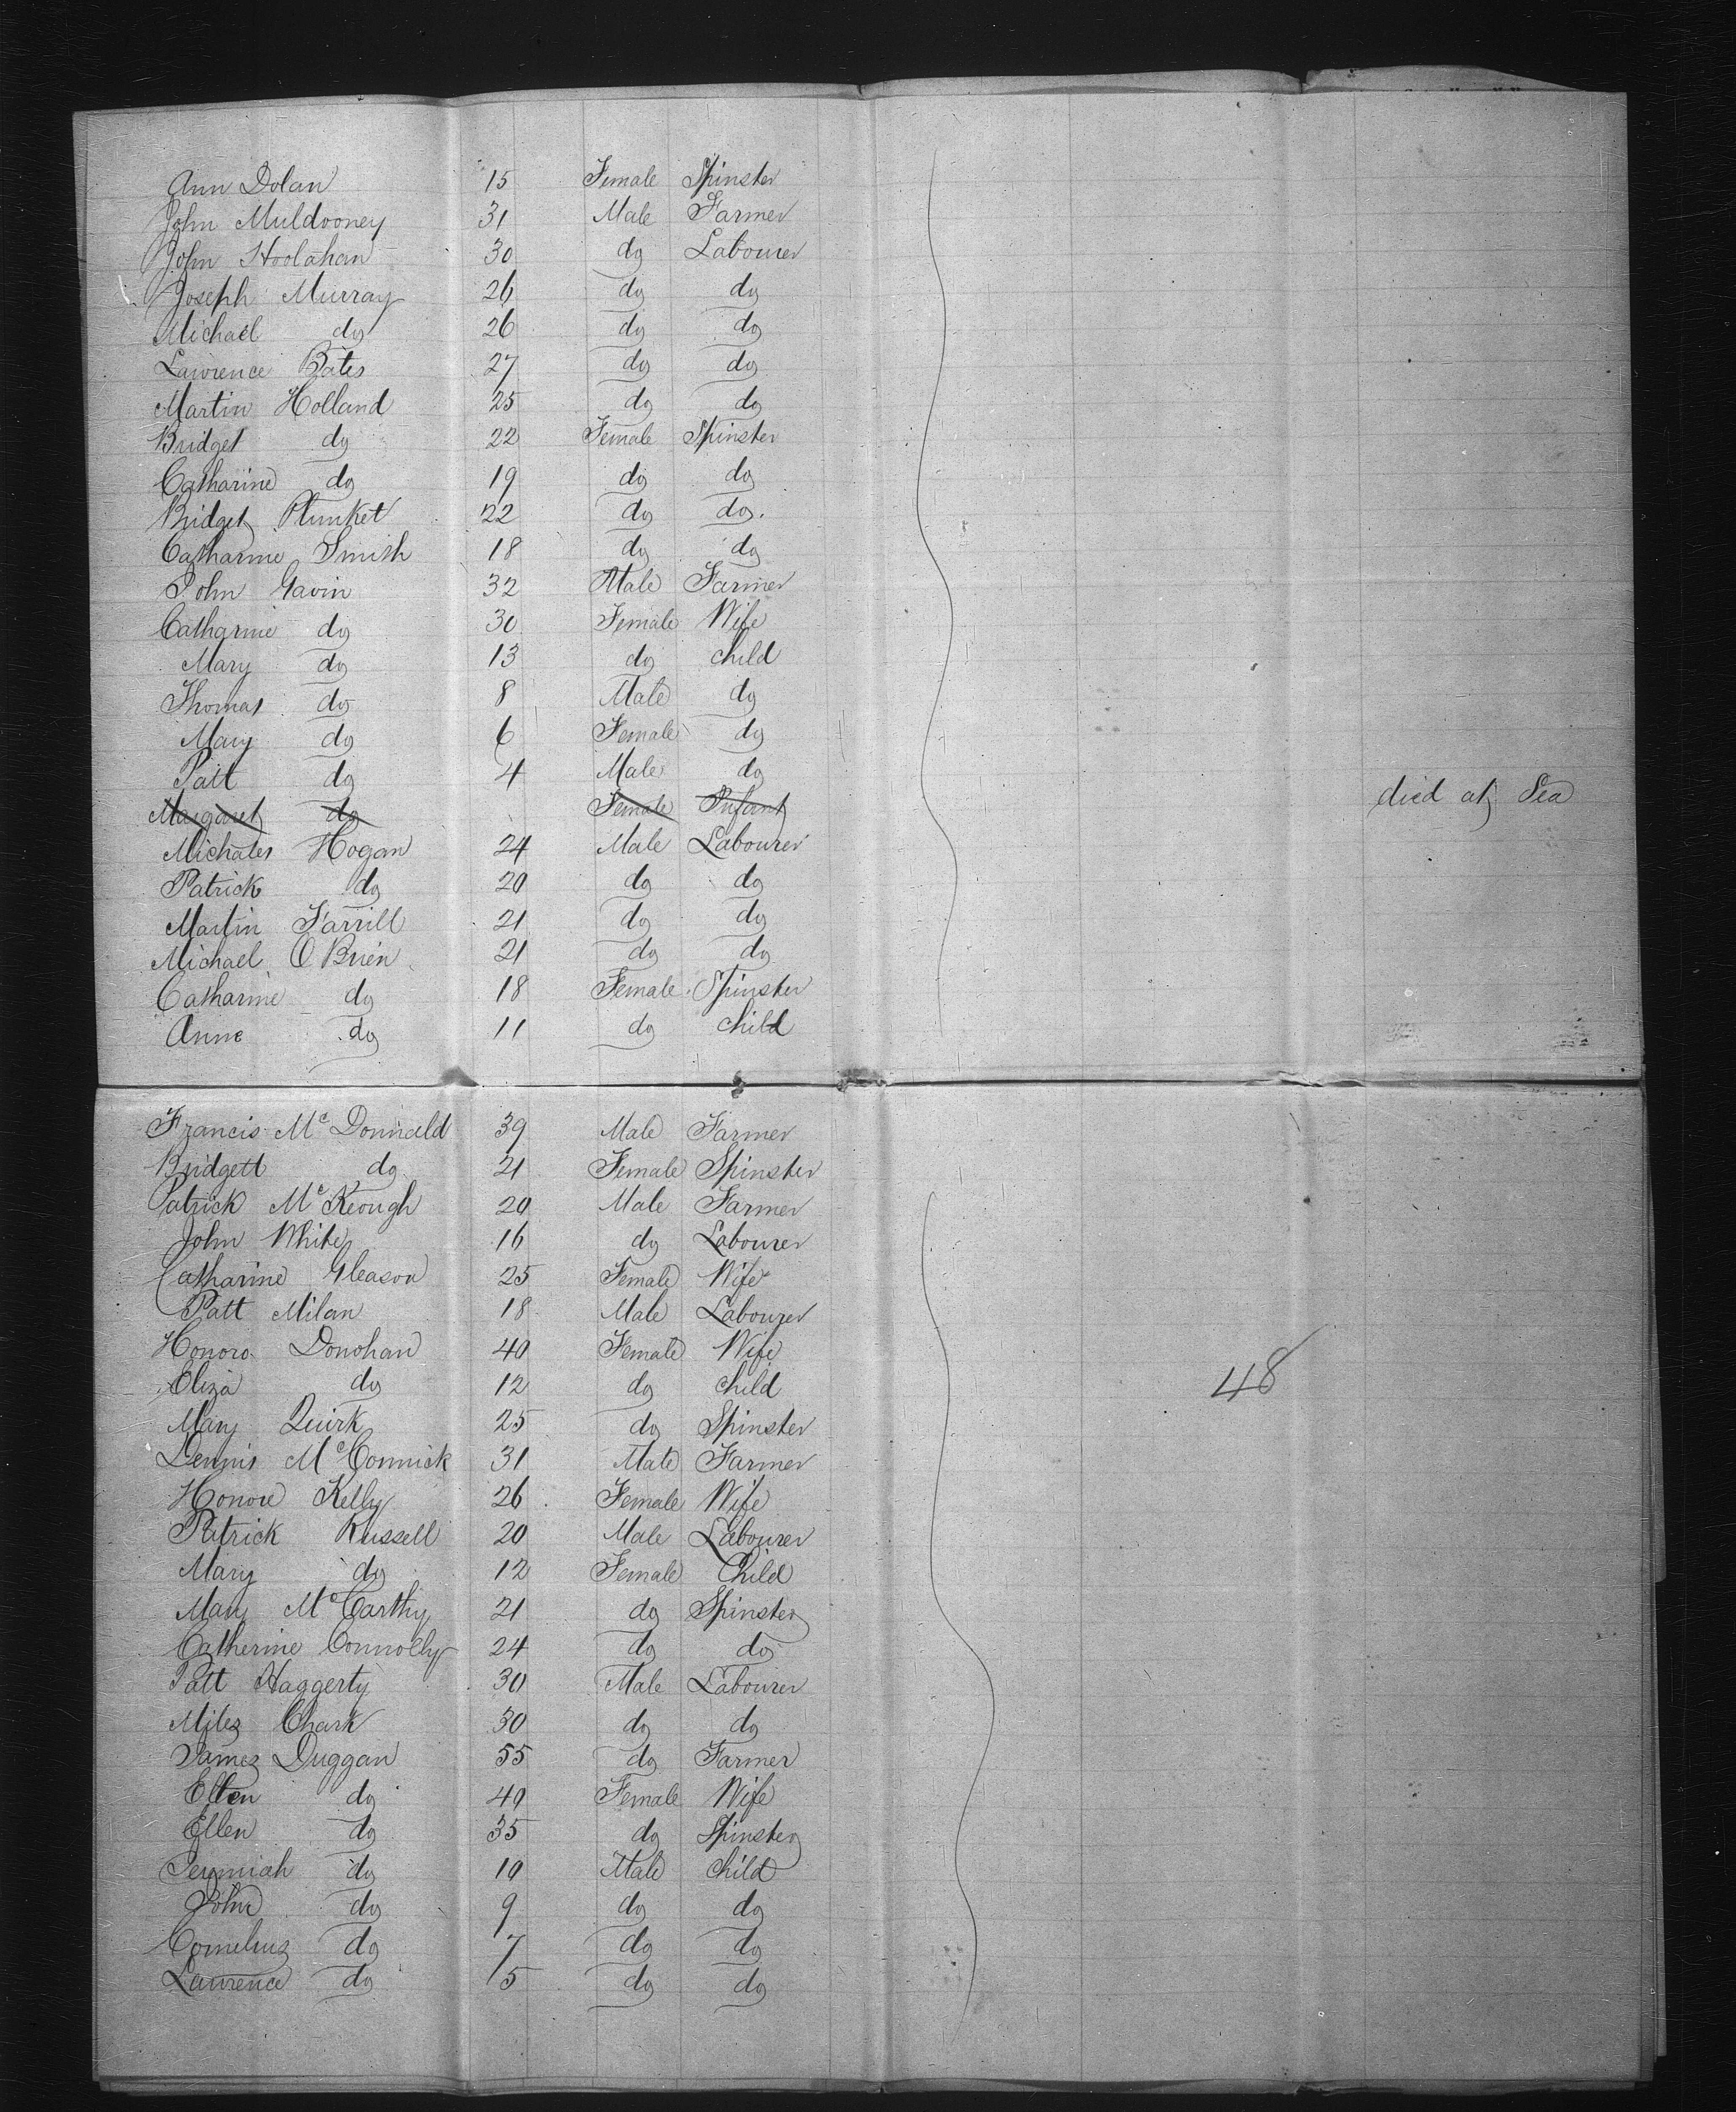 Ann Dolan 15 Female Spinster
John Muldooney 31 Male Farmer
John Hoolahan 30 do Labourer
Joseph Murray 26 do do
Michael do 26 do do
Lawrence Bates 27 do do
Martin Holland 25 do do
Bridget do 22 Female Spinster
Catharine do 19 do do
Bridget Plunket 22 do do.
Catharine Smith 18 do do
John Gavin 32 Male Farmer
Catharine do 30 Female Wife
Mary do 13 do child
Thomas do 8 Male do
Mary do 6 Female do
Patt do 4 Male do
Margaret do Female Infant died at Sea
Hogan 24 Male Labourer
Patrick do 20 do do
Martin Farrill 21 do do
Michael O Brien 21 do do
Catharine do 18 Female Spinster
Anne do 11 do child
Francis Mc Donnald 39 Male Farmer
Bridgett do 21 Female Spinster
Patrick Mc Keough 20 Male Farmer
John White 16 do Labourer
Catharine Gleason 25 Female Wife
Patt Milan 18 Male Labourer
Honoro Donohan 40 Female Wife
Eliza do 12 do child
48
Mary Quirk 25 do Spinster
Dennis Mc Connick 31 Male Farmer
Honore Kelly 26 Female Wife
Patrick Russell 20 Male Labourer
Mary do 12 Female Child
Mary Mc Carthy 21 do Spinster
Catherine Connolly 24 do do
Patt Haggerty 30 Male Labourer
Miles Chark 30 do do
James Duggan 55 do Farmer
Ellen do 40 Female Wife
Ellen do 35 do Spinster
Jeremiah do 10 Male child
John do 9 do do
Cornelius do 7 do do
Lawrence do 5 do do